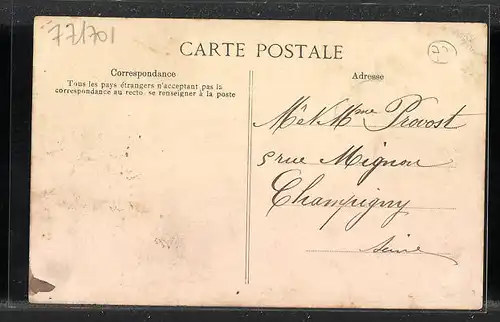 77/701
CARTE POSTALE
Correspondance
Tous les pays étrangers n'acceptant pas la
correspondance au recto, se renseigner à la poste
Adresse
Mr & Mme Provost
5 rue Mignon
Champigny
Seine